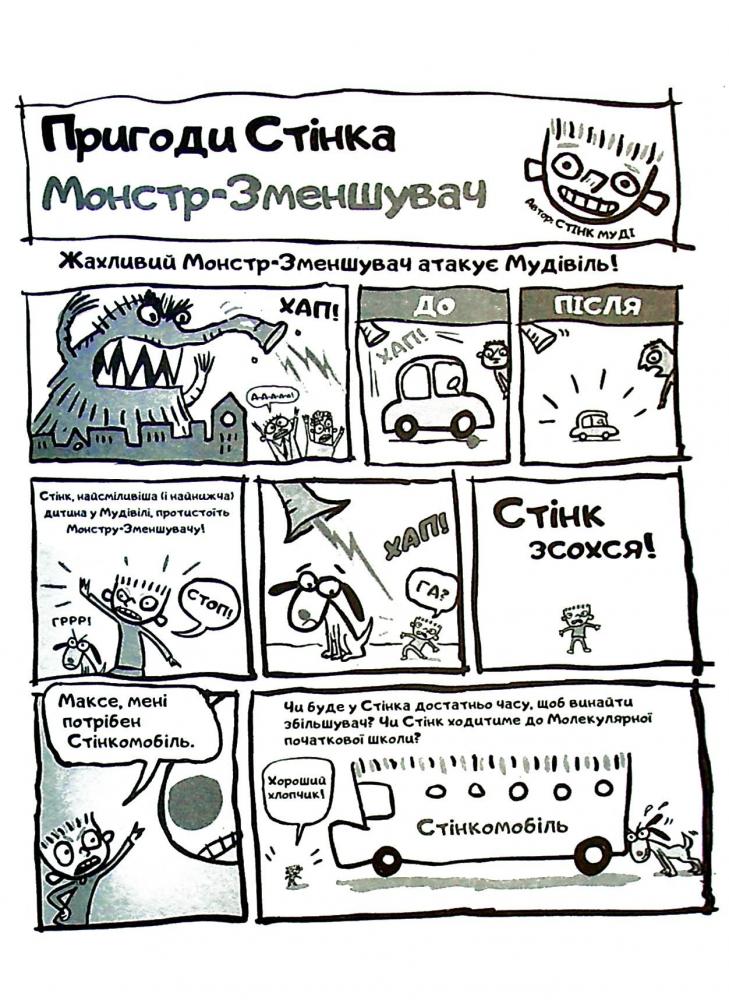 Пригоди Стінка
Монстр-Зменшувач
Автор: СТІНК МУДІ
Жахливий Монстр-Зменшувач атакує Мудівіль!
ХАП!
А-А-А-А-А!
ДО
ХАП!
ПІСЛЯ
Стінк, найсміливіша (і найнижча)
дитина у Мудівілі, протистоїть
Монстру-Зменшувачу!
СТОП!
ГРРР!
ХАП!
ГА?
Стінк
зсохся!
Максе, мені
потрібен
Стінкомобіль.
Чи буде у Стінка достатньо часу, щоб винайти
збільшувач? Чи Стінк ходитиме до Молекулярної
початкової школи?
Хороший
хлопчик!
Стінкомобіль